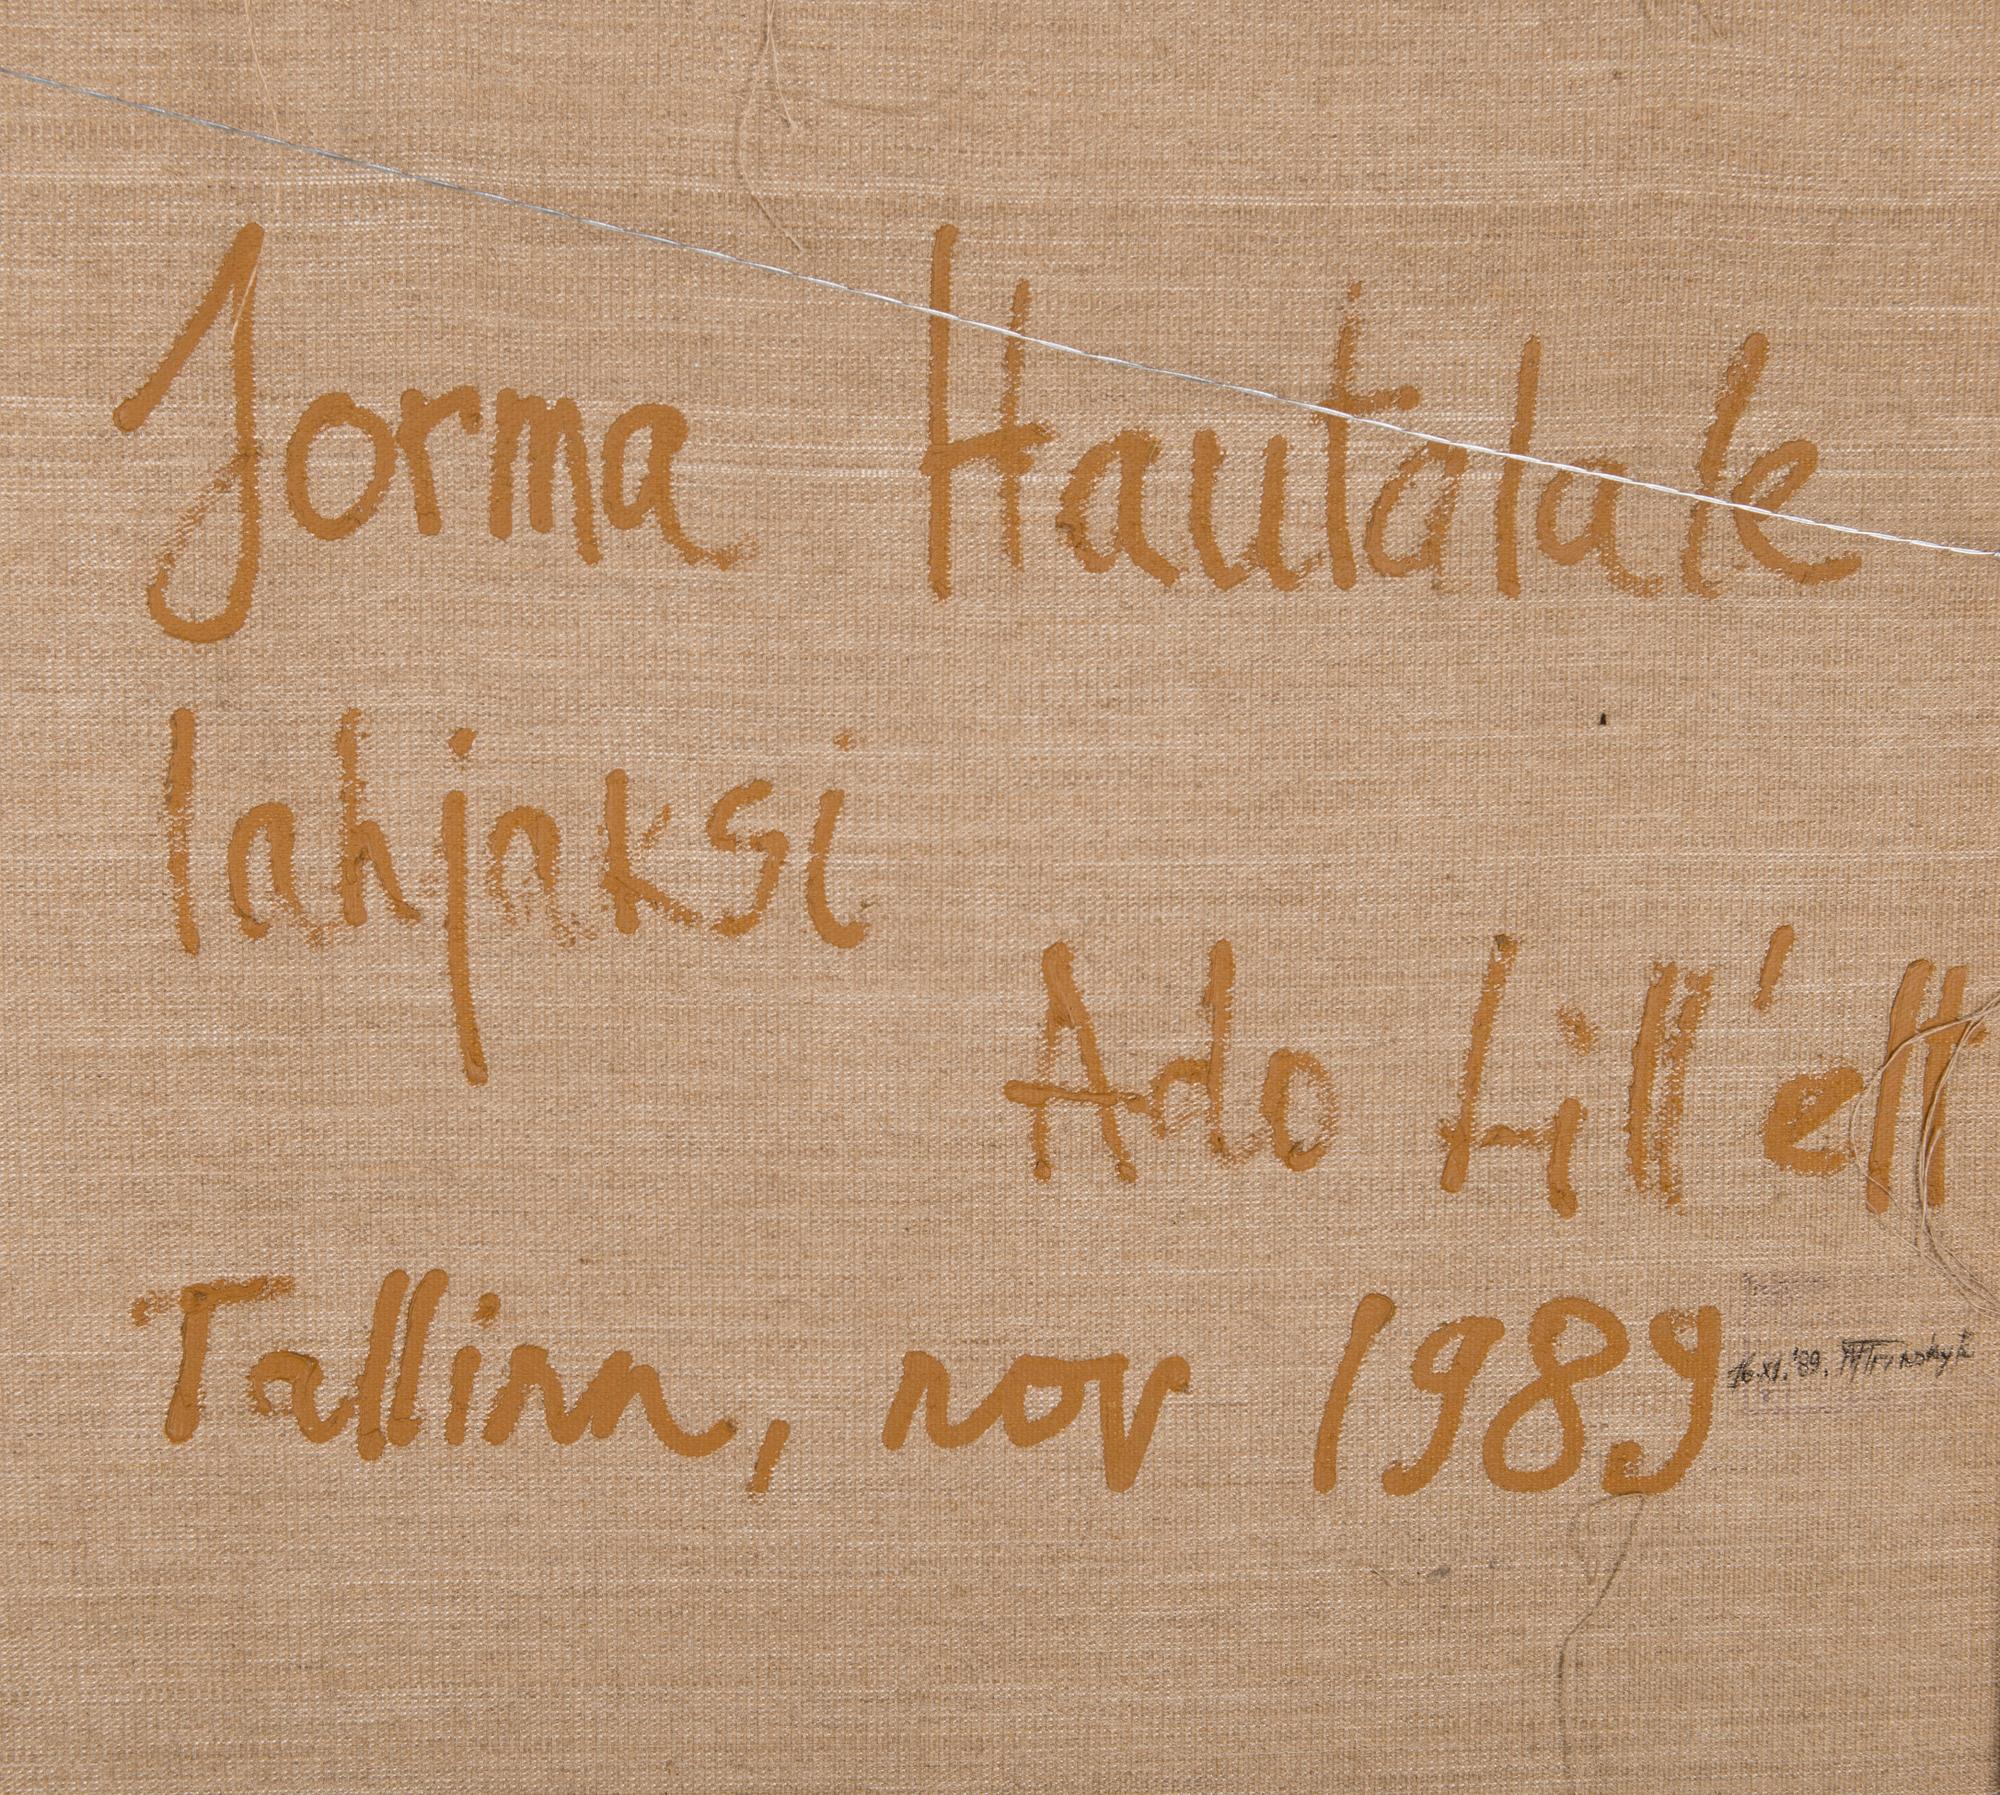 Jorma Hautalale
lahjaksi
Ado Lill'elt
Tallinn, nov 1989
16.XI.'89.